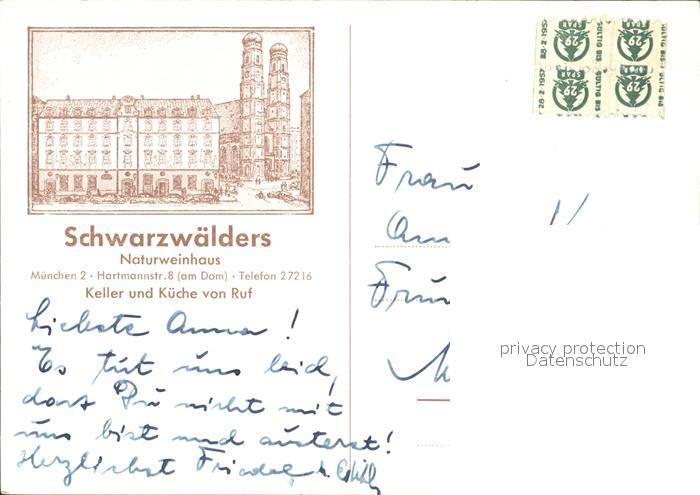 Schwarzwälders
Naturweinhaus
München 2 · Hartmannstr. 8 (am Dom) · Telefon 27216
Keller und Küche von Ruf
Liebste Anna!
Es tut uns leid,
dass Du nicht mit
uns bist und austerst!
Herzlichst Friedel
28·2·1957 GÜLTIG BIS
29
SPAR
28·2·1957 GÜLTIG BIS
29
SPAR
Frau
privacy protection
Datenschutz